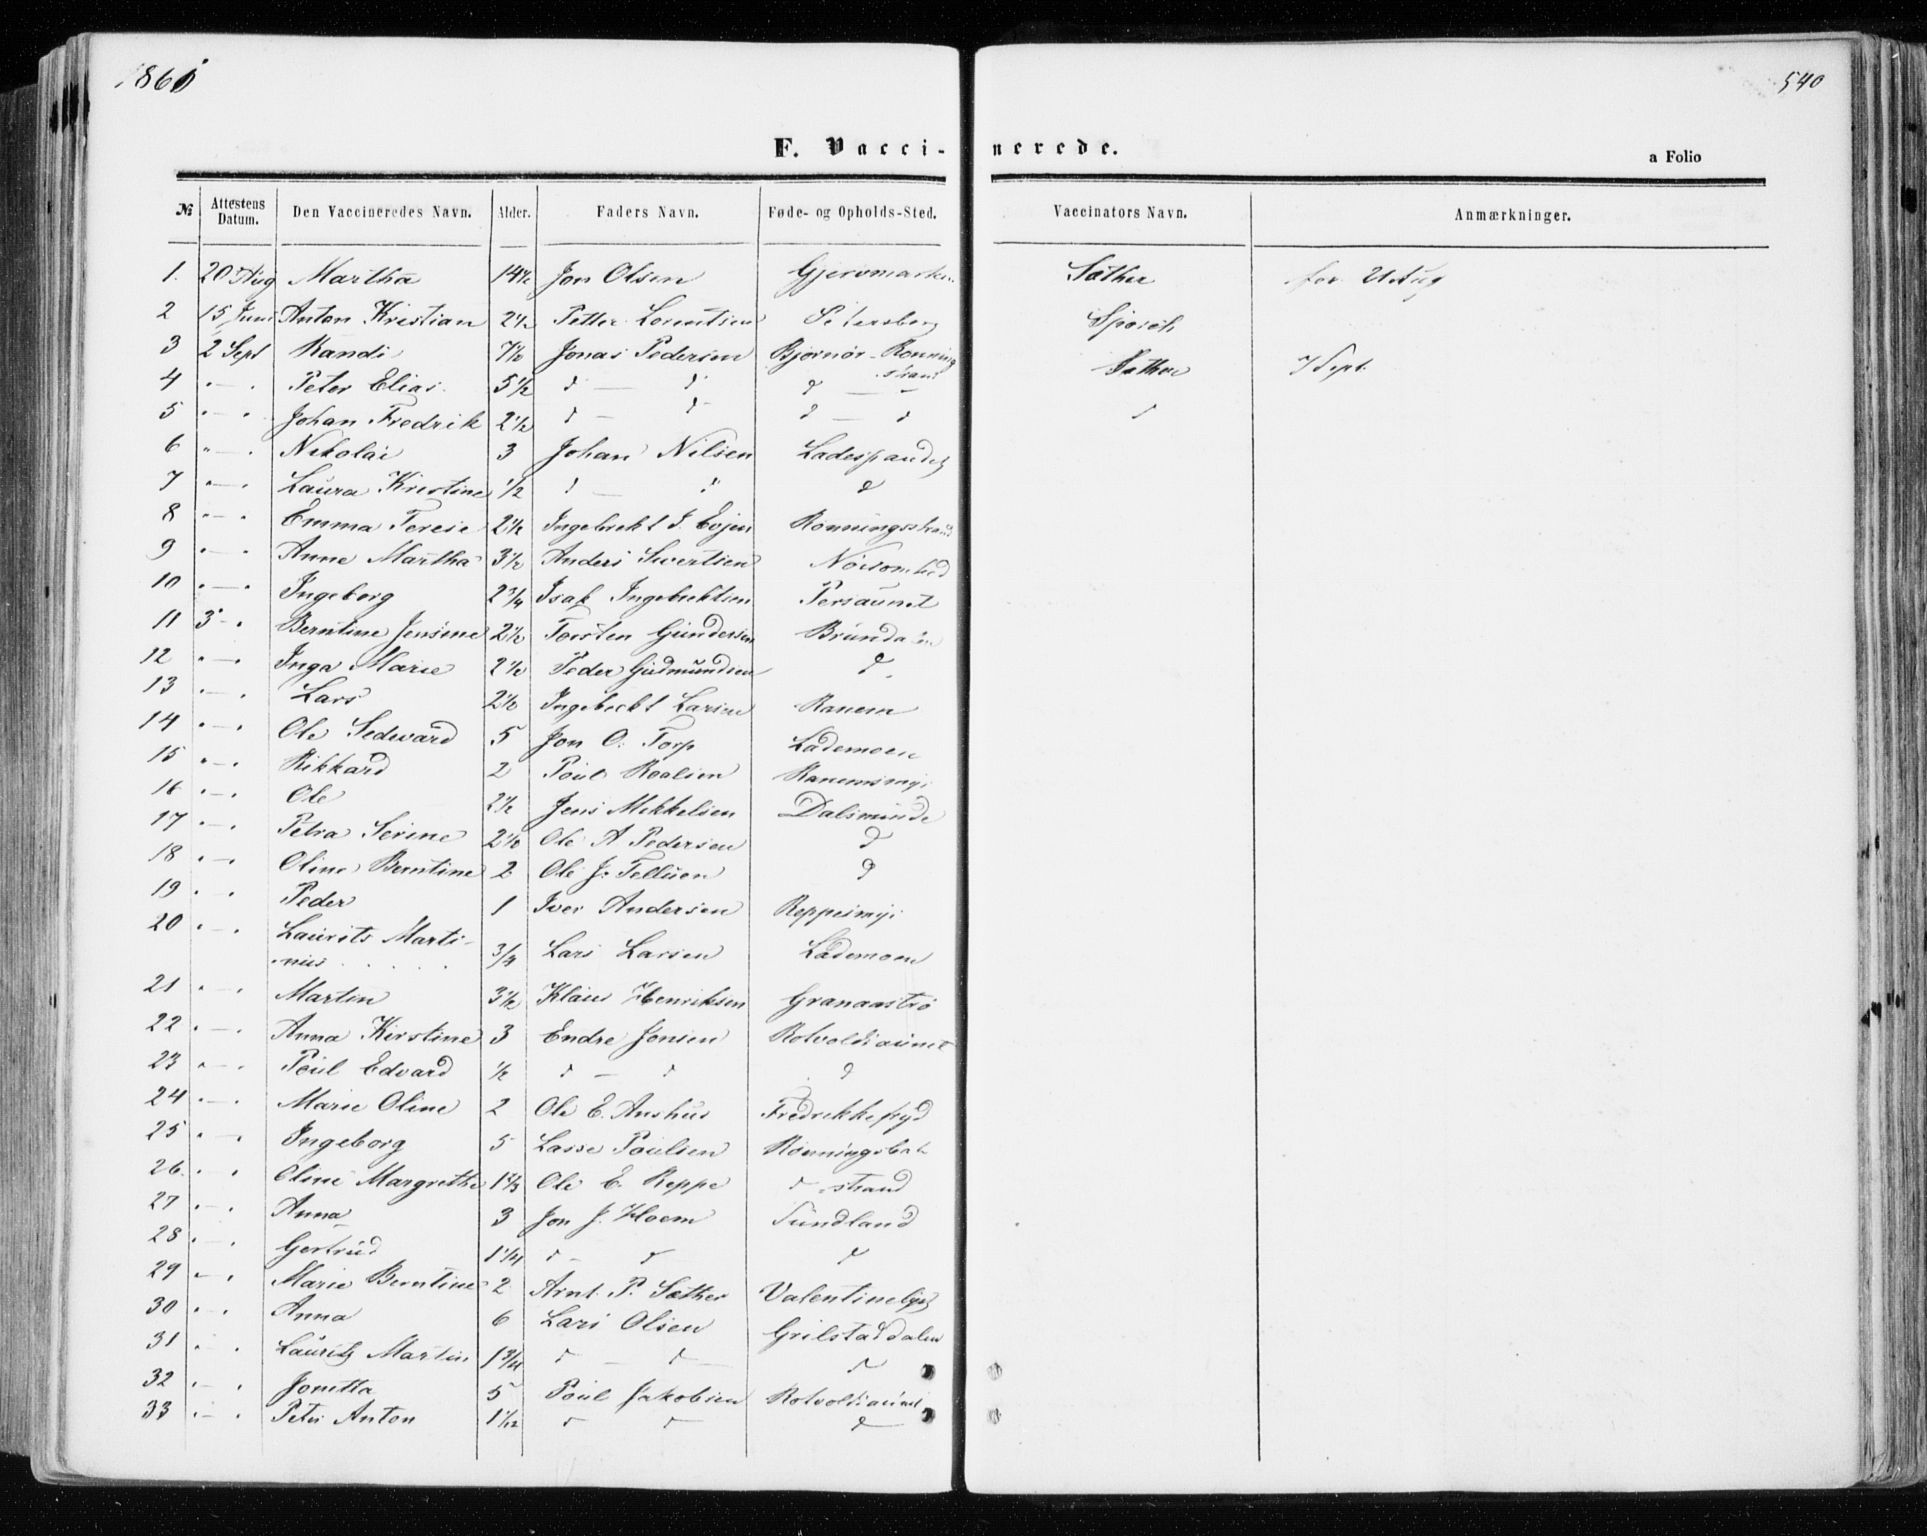 540
F. Vaccinerede.
a Folio
№ Attestens Datum. Den Vaccineredes Navn. Alder. Faders Navn. Føde- og Opholds-Sted. Vaccinators Navn. Anmærkninger.
1. 20 Aug Martha 14½ Jon Olsen Sæther for Aug
2 15 Juni Anton Kristian 2½ Petter Lorentsen Petersborg
3 2 Sept Randi 7½ Jonas Pedersen Bjørnør - Rønningstrand Sæther 7 Sept.
4 " — " Peter Elias 5½ d — d d —
5 " — " Johan Fredrik 2½ d — d d — d d
6 " — " Nikolai 3 Johan Nilsen
7 " — " Laura Kristine ½ d — d d
8 " — " Emma Terese 2½ Ingebrekt J. Evjen Rønningsstrand
9 " — " Anne Martha 3½ Anders Sivertsen
10 " — " Ingeborg 2¾ Isak Ingebrektsen Persaunet
11 3 " Berntine Jensine 2½ Torsten Gundersen Brundalen
12 " — " Inga Marie 2½ Peder Gudmundsen d
13 " — " Lars 2½ Ingebrekt Larsen Ranem
14 " — " Ole Sedevard 5 Jon O. Torp Lademoen
15 " — " Rikkard 2 Poul Roalsen
16 " — " Ole 2½ Jens Mikkelsen Dalsminde
17 " — " Petra Serine 2½ Ole A Pedersen d
18 " — " Oline Berntine 2 Ole J. d
19 " " Peder 1 Iver Andersen
20 " " Laurits Marti-
nus 3/4 Lars Larsen Lademoen
21 " " Martin 3½ Klaus Henriksen
22 " — " Anna Kirstine 3 Endre Jonsen Rotvoldsaunet
23 " — " Poul Edvard ½ d — d d
24 " — " Marie Oline 2 Ole E. Aushus Fredrikkefryd
25 " " Ingeborg 5 Lasse Poulsen
26 " " Oline Margrethe Ole E. Reppe d strand
27 " " Anna 3 Jon J. Hoem Sundland
28 " " Gertrud 1¼ d — d d
29 " " Marie Berntine 2 Arnt P. Sæther Valentinelyst
30 " — " Anna 6 Lars Olsen Grilstaddalen
31 " " Lauritz Martin 1¾ d — d d
32 " — " Jonetta 5 Poul Jakobsen Rotvoldsaunet
33 " — " Peter Anton 1 1/12 d d d